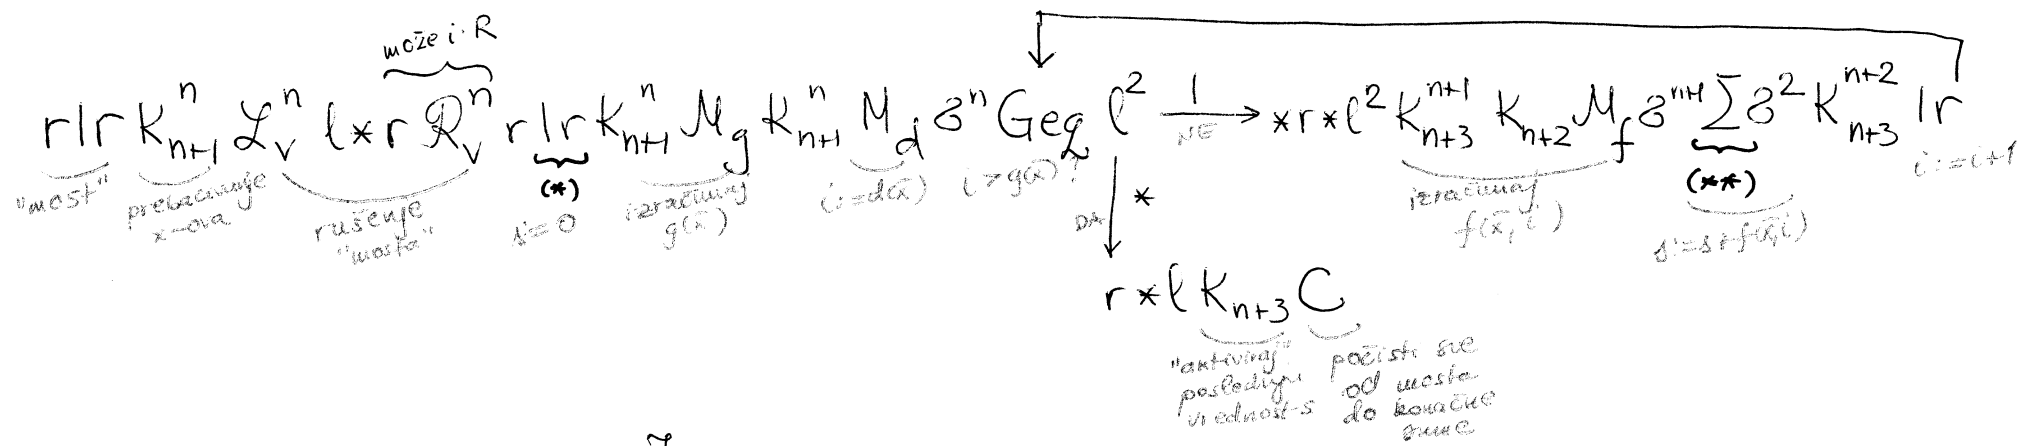 može i R
r|r K^n_{n+1} ℒ^n_v l * r ℛ^n_v r|r K^n_{n+1} M_g K^n_{n+1} M_d ϩ^n Geq l^2 —1→ * r * l^2 K^{n+1}_{n+3} K_{n+2} M_f ϩ^{n+1} Σ ϩ^2 K^{n+2}_{n+3} |r
NE
"most"
prebacivanje
x-ova
rušenje
"mosta"
(*)
s:=0
izračunaj
g(x̄)
i:=d(x̄)
i>g(x̄)?
DA
*
izračunaj
f(x̄, i)
(**)
s:=s+f(x̄,i)
i:=i+1
r * l K_{n+3} C
"aktiviraj"
poslednju
vrednost s
počisti sve
od mosta
do konačne
sume